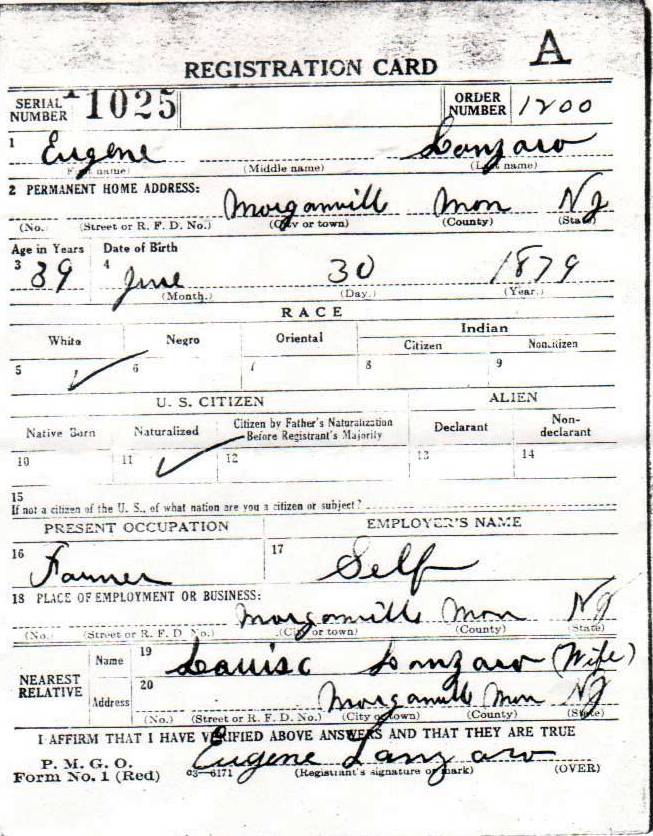 A
REGISTRATION CARD
SERIAL NUMBER 1025 ORDER NUMBER 1200
1 Eugene Lanzaro
(First name) (Middle name) (Last name)
2 PERMANENT HOME ADDRESS:
Morganvill Mon NJ
(No.) (Street or R. F. D. No.) (City or town) (County) (State)
Age in Years Date of Birth
3 39 4 June 30 1879
(Month.) (Day.) (Year.)
RACE
White Negro Oriental Indian
Citizen Noncitizen
5 6 7 8 9
U. S. CITIZEN ALIEN
Native Born Naturalized Citizen by Father's Naturalization Before Registrant's Majority Declarant Non-declarant
10 11 12 13 14
15
If not a citizen of the U. S., of what nation are you a citizen or subject?
PRESENT OCCUPATION EMPLOYER'S NAME
16 Farmer 17 Self
18 PLACE OF EMPLOYMENT OR BUSINESS:
Morganvill Mon NJ
(No.) (Street or R. F. D. No.) (City or town) (County) (State)
NEAREST RELATIVE Name 19 Louisa Lanzaro (Wife)
Address 20 Morganvill Mon NJ
(No.) (Street or R. F. D. No.) (City or town) (County) (State)
I AFFIRM THAT I HAVE VERIFIED ABOVE ANSWERS AND THAT THEY ARE TRUE
Eugene Lanzaro
P. M. G. O.
Form No. 1 (Red) 03—6171 (Registrant's signature or mark) (OVER)